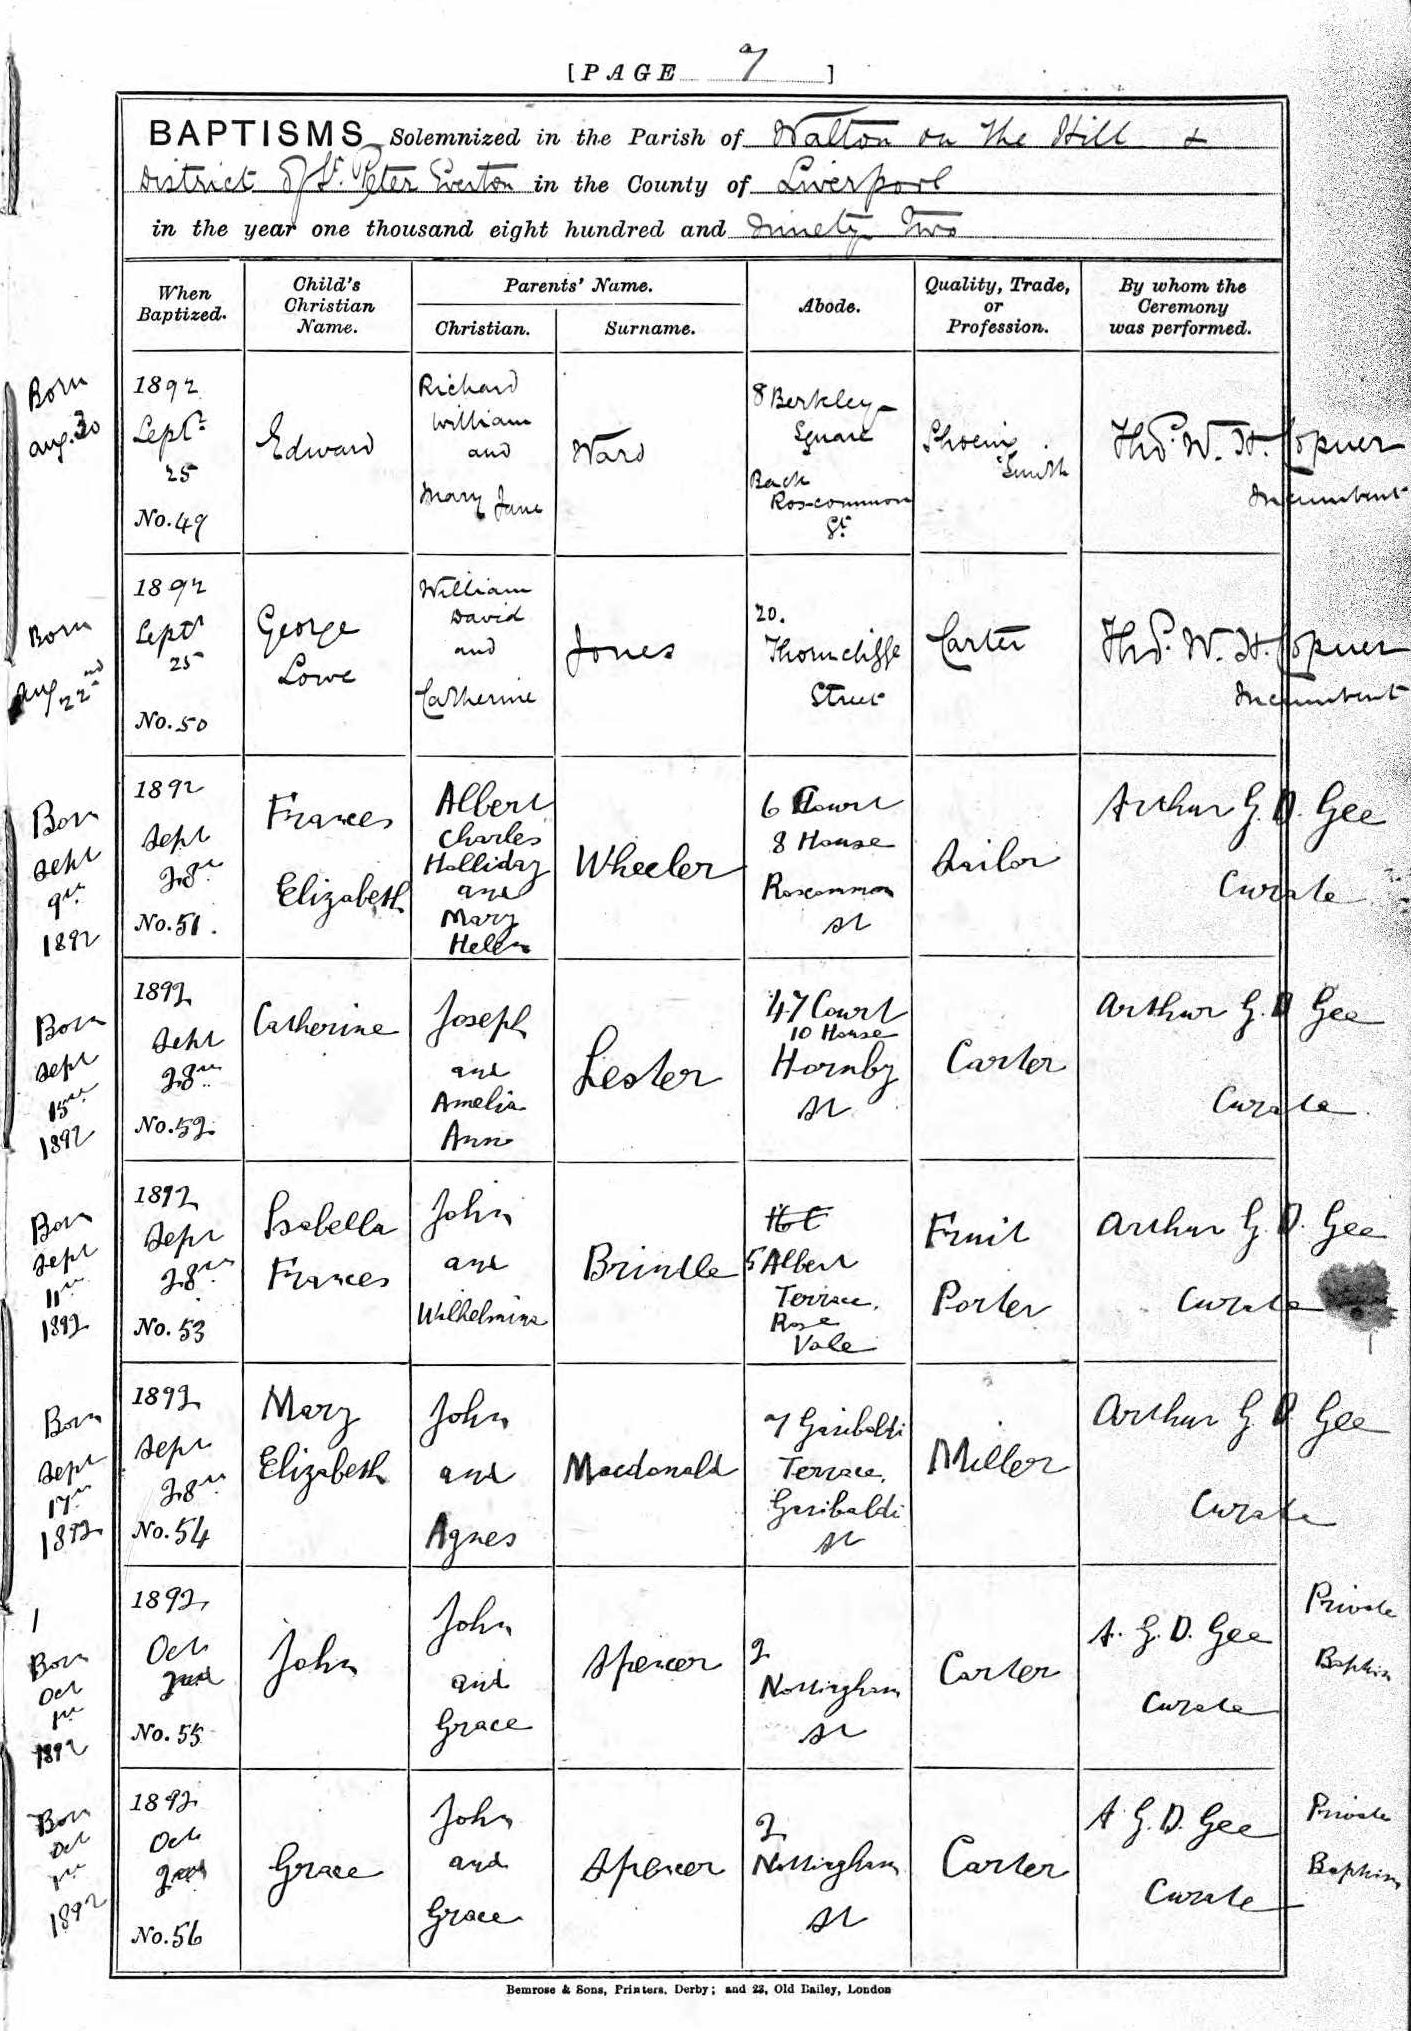 [PAGE 7]
BAPTISMS Solemnized in the Parish of Walton on the Hill &
District of St. Peter Everton in the County of Liverpool
in the year one thousand eight hundred and Ninety Two
When Baptized.
Child's Christian Name.
Parents' Name.
Christian.
Surname.
Abode.
Quality, Trade, or Profession.
By whom the Ceremony was performed.
Born
Aug. 30
1892
Septr
25
No. 49
Edward
Richard
William
and
Mary Jane
Ward
8 Berkley
Square
Back
Roscommon
St.
Smith
Thos. W. H. Copner
Incumbent
Born
Aug 22nd
1892
Septr
25
No. 50
George
Lowe
William
David
and
Catherine
Jones
20.
Thorncliffe
Street
Carter
Thos. W. H. Copner
Incumbent
Born
Sept
9th
1892
1892
Sept
28th
No. 51.
Frances
Elizabeth
Albert
Charles
Holliday
and
Mary
Helen
Wheeler
6 Court
8 House
Roscommon
St
Sailor
Arthur G. D. Gee
Curate
Born
Sept
15th
1892
1892
Sept
28th
No. 52
Catherine
Joseph
and
Amelia
Ann
Lester
47 Court
10 House
Hornby
St
Carter
Arthur G. D Gee
Curate
Born
Sept
11th
1892
1892
Sept
28th
No. 53
Isabella
Frances
John
and
Wilhelmina
Brindle
5 Albert
Terrace,
Rose
Vale
Fruit
Porter
Arthur G. D. Gee
Curate
Born
Sept
17th
1892
1892
Sept
28th
No. 54
Mary
Elizabeth
John
and
Agnes
Macdonald
7 Garibaldi
Terrace,
Garibaldi
St
Miller
Arthur G. D Gee
Curate
Born
Oct
1st
1892
1892
Oct
2nd
No. 55
John
John
and
Grace
Spencer
2
Nottingham
St
Carter
A. G. D. Gee
Curate
Private
Baptism
Born
Oct
1st
1892
1892
Oct
2nd
No. 56
Grace
John
and
Grace
Spencer
2
Nottingham
St
Carter
A G. D. Gee
Curate
Private
Baptism
Bemrose & Sons, Printers, Derby; and 23, Old Bailey, London